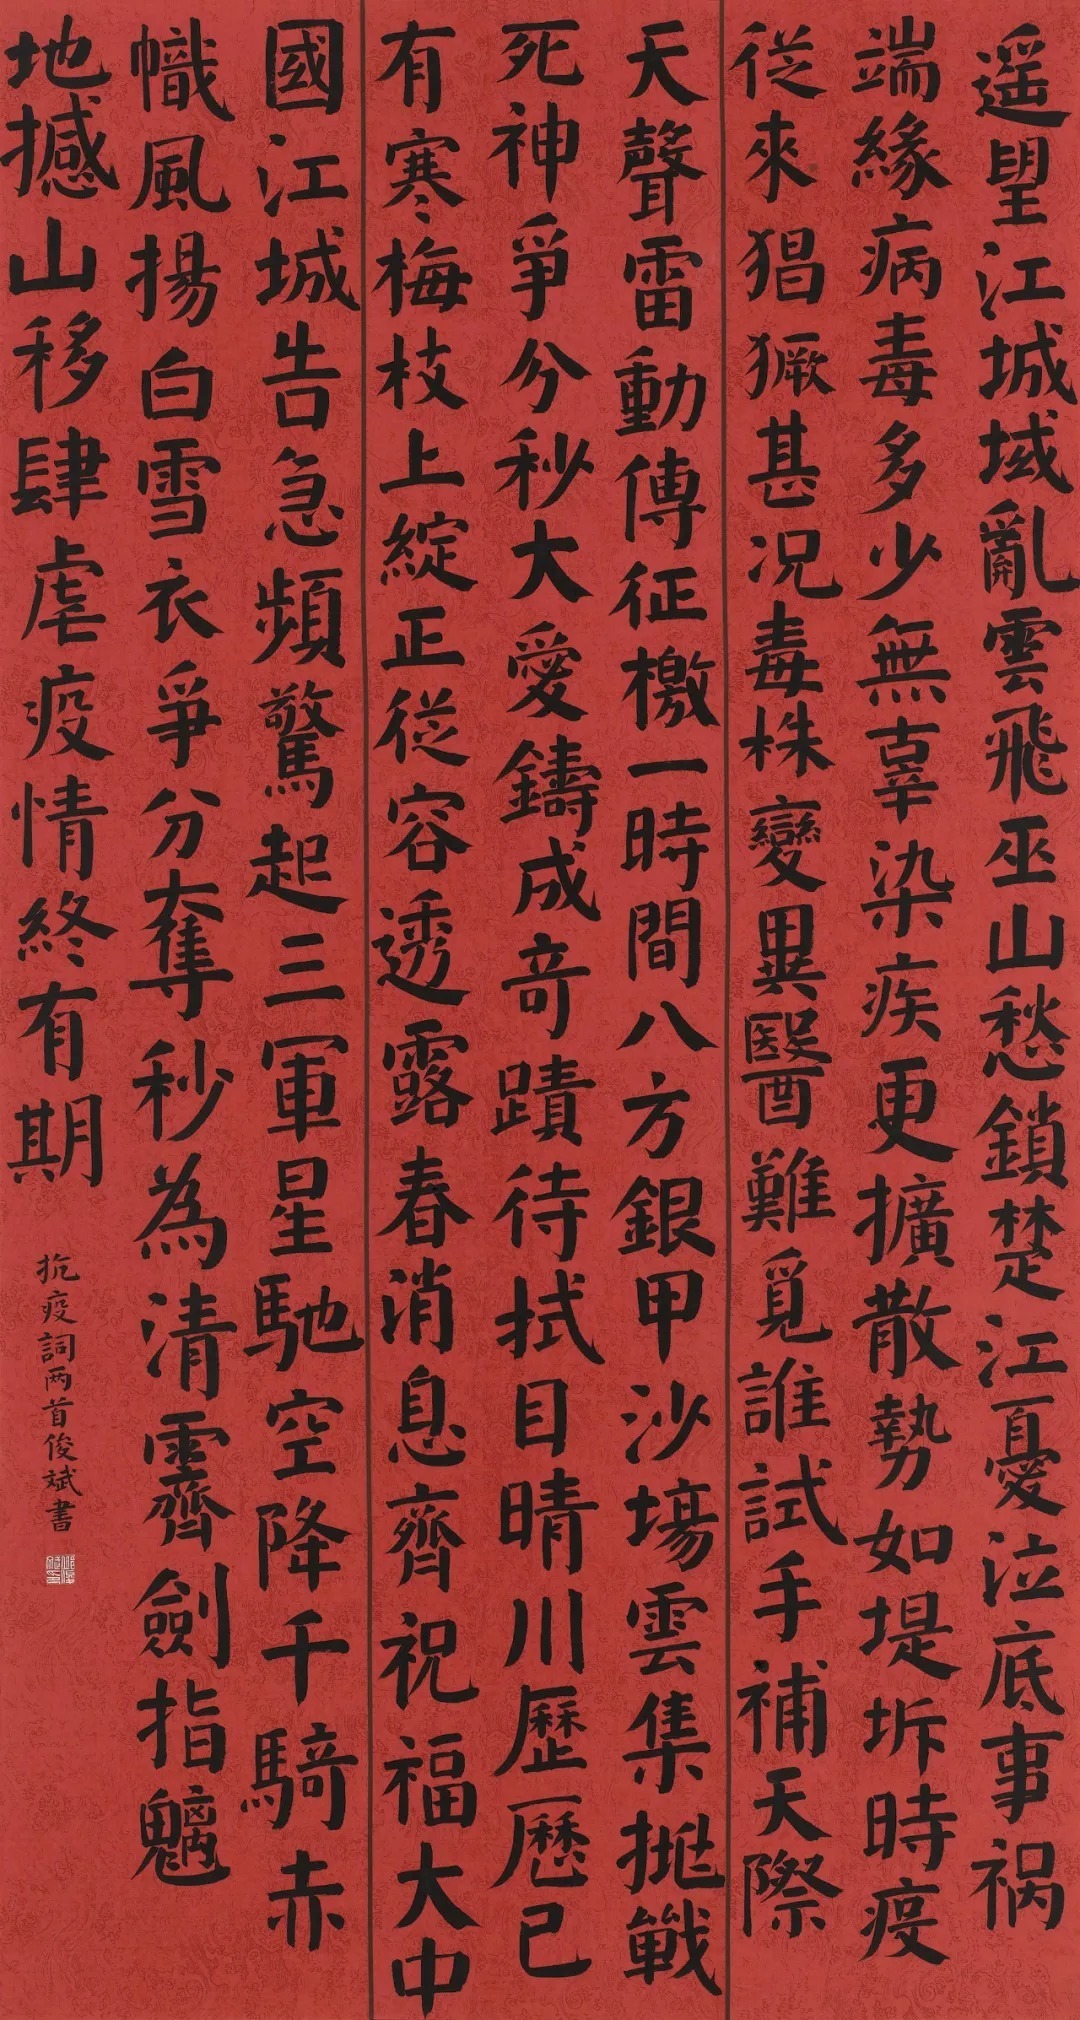 遥望江城域亂雲飛巫山愁鎖楚江憂泣底事祸
端緣病毒多少無辜染疾更擴散勢如堤坼時疫
從來猖獗甚况毒株變異醫難覓誰試手補天際
天聲雷動傳征檄一時間八方銀甲沙場雲集挑戰
死神爭分秒大愛鑄成奇蹟待拭目晴川歷歷已
有寒梅枝上綻正從容透露春消息齊祝福大中
國江城告急頻驚起三軍星馳空降千騎赤
幟風揚白雪衣爭分奪秒為清霽劍指魑
地撼山移肆虐疫情終有期
抗疫詞两首俊斌書